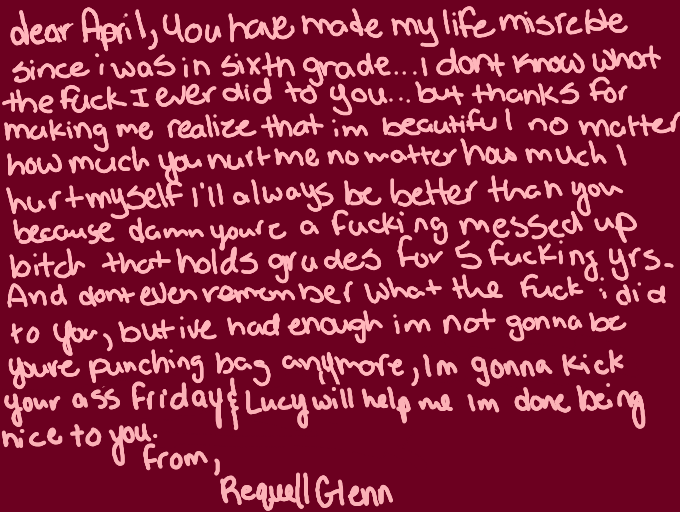 dear April, you have made my life misreble
since i was in sixth grade...i dont know what
the fuck I ever did to you...but thanks for
making me realize that im beautiful no matter
how much you hurt me no matter how much I
hurt myself I'll always be better than you
because damn youre a fucking messed up
bitch that holds grudes for 5 fucking yrs.
And dont even remember what the fuck i did
to you, but ive had enough im not gonna be
youre punching bag anymore, Im gonna kick
your ass friday & Lucy will help me im done being
nice to you.
from,
Requell Glenn